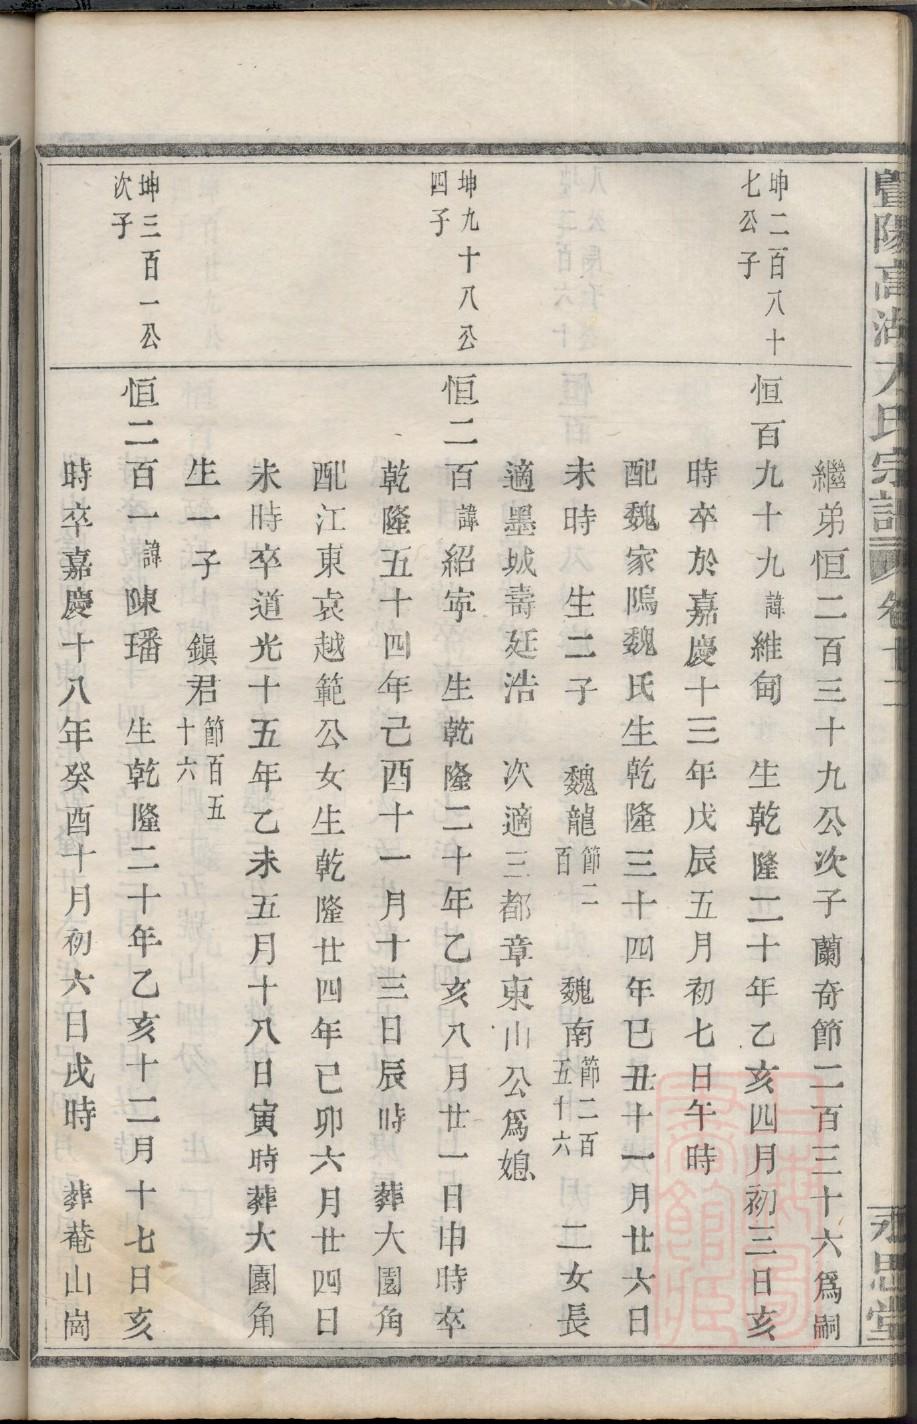 暨陽高湖大氏宗譜 卷十二 永思堂
繼弟恒二百三十九公次子蘭奇節二百三十六爲嗣
坤二百八十七公子
恒百九十九諱維甸 生乾隆二十年乙亥四月初三日亥
時卒於嘉慶十三年戊辰五月初七日午時
配魏家隝魏氏生乾隆三十四年巳丑十一月廿六日
未時 生二子 魏龍節二百 魏南節二百五十六 二女長
適墨城壽廷浩 次適三都章東山公爲媳
坤九十八公四子
恒二百諱紹寜 生乾隆二十年乙亥八月廿一日申時卒
乾隆五十四年己酉十一月十三日辰時 葬大園角
配江東袁越範公女生乾隆廿四年己卯六月廿四日
未時卒道光十五年乙未五月十八日寅時葬大園角
生一子 鎮君節百五十六
坤三百一公次子
恒二百一諱陳璠 生乾隆二十年乙亥十二月十七日亥
時卒嘉慶十八年癸酉十月初六日戌時 葬菴山崗